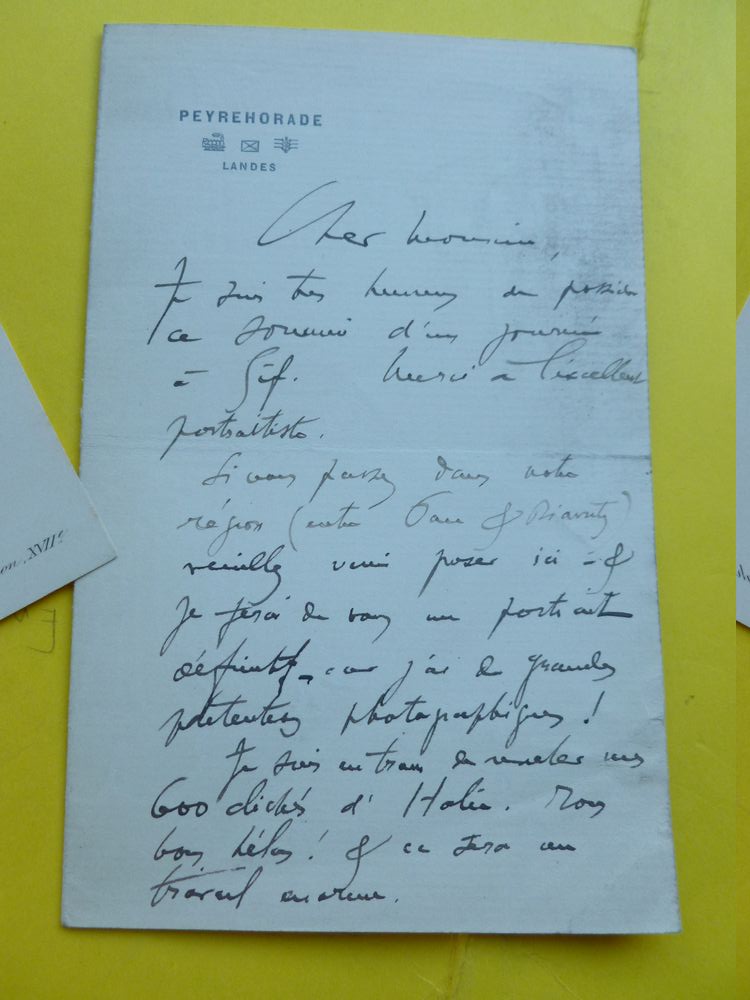 PEYREHORADE
LANDES
Cher Monsieur,
Je suis très heureux de posséder
ce souvenir d'une journée
à Gif. Merci à l'excellent
portraitiste.
Si vous passez dans notre
région (entre Pau & Biarritz)
veuillez venir poser ici - &
je ferai de vous un portrait
définitif - car j'ai de grandes
prétentions photographiques !
Je suis en train de revoler mes
600 clichés d'Italie. Tous
bons hélas ! & ce sera un
travail énorme.
on XVII?